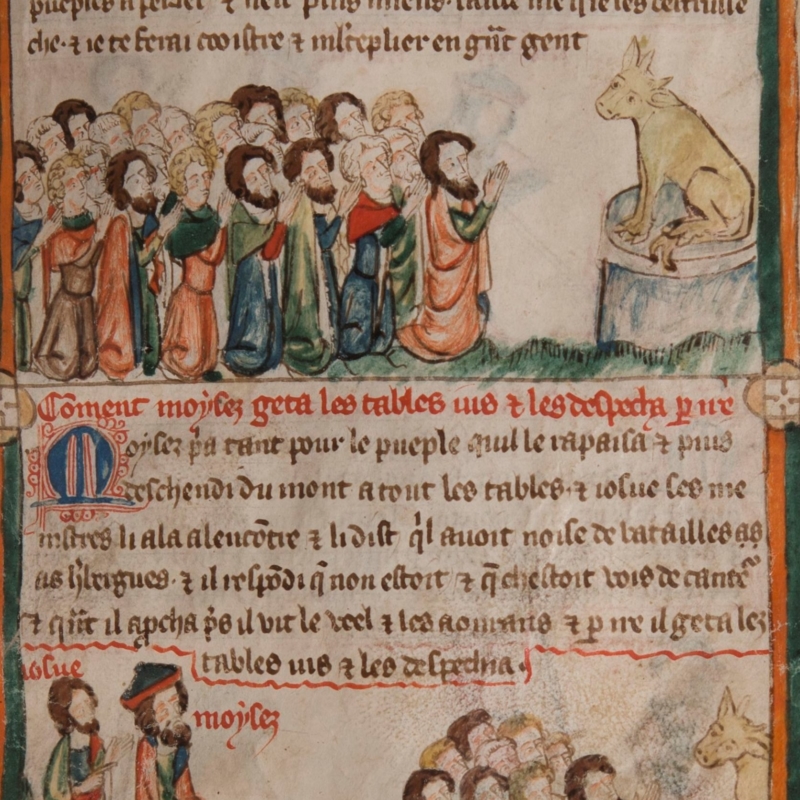 pueples a perdre ⁊ neit plus iniens. laisse me que ies destruise
che· ⁊ ie te ferai cᵒoistre ⁊ mlteplier en gñt gent
Cõment moẏsez geta les tables ius ⁊ les despecha p̱ ire
Moẏsez pͥa tant pour le pueple quil le rapaisa ⁊ puis
deschendi du mont a tout les tables· ⁊ iosue ses me
nistres li ala alencõtre ⁊ li dist ql auoit noise de batailles as
as hbergues· ⁊ il respõdi q̃ non estoit ⁊ q̃ chestoit vois de cante
⁊ qñt il apcha ps il vit le veel ⁊ les aourans ⁊ p ire il geta lez
tables ius ⁊ les despecha·
iosue
moẏsez